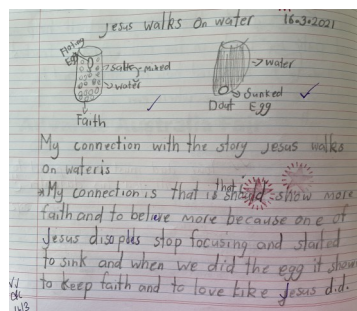 Jesus walks on water 16-3-2021
Floting
Egg
salty mixed
water
Faith
water
Sunked
Egg
Dout
My connection with the story Jesus walks
on water is
*My connection is that I should show more
faith and to belive more because one of
Jesus disoples stop focusing and started
to sink and when we did the egg it shows
to keep faith and to love like Jesus did.
16/3